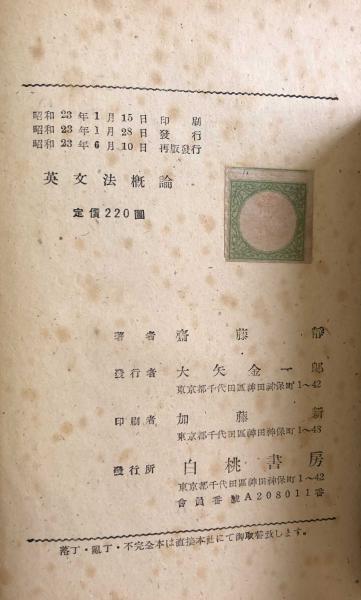 昭和 23 年 1 月 15 日 印 刷
昭和 23 年 1 月 28 日 發 行
昭和 23 年 6 月 10 日 再版發行
英文法概論
定價220圓
著 者 齋 藤 靜
發行者 大矢金一郎
東京都千代田區神田神保町1～42
印刷者 加 藤 新
東京都千代田區神田神保町1～43
發行所 白桃書房
東京都千代田區神田神保町1～42
會員番號A208011番
落丁・亂丁・不完全本は直接本社にて御取替致します。